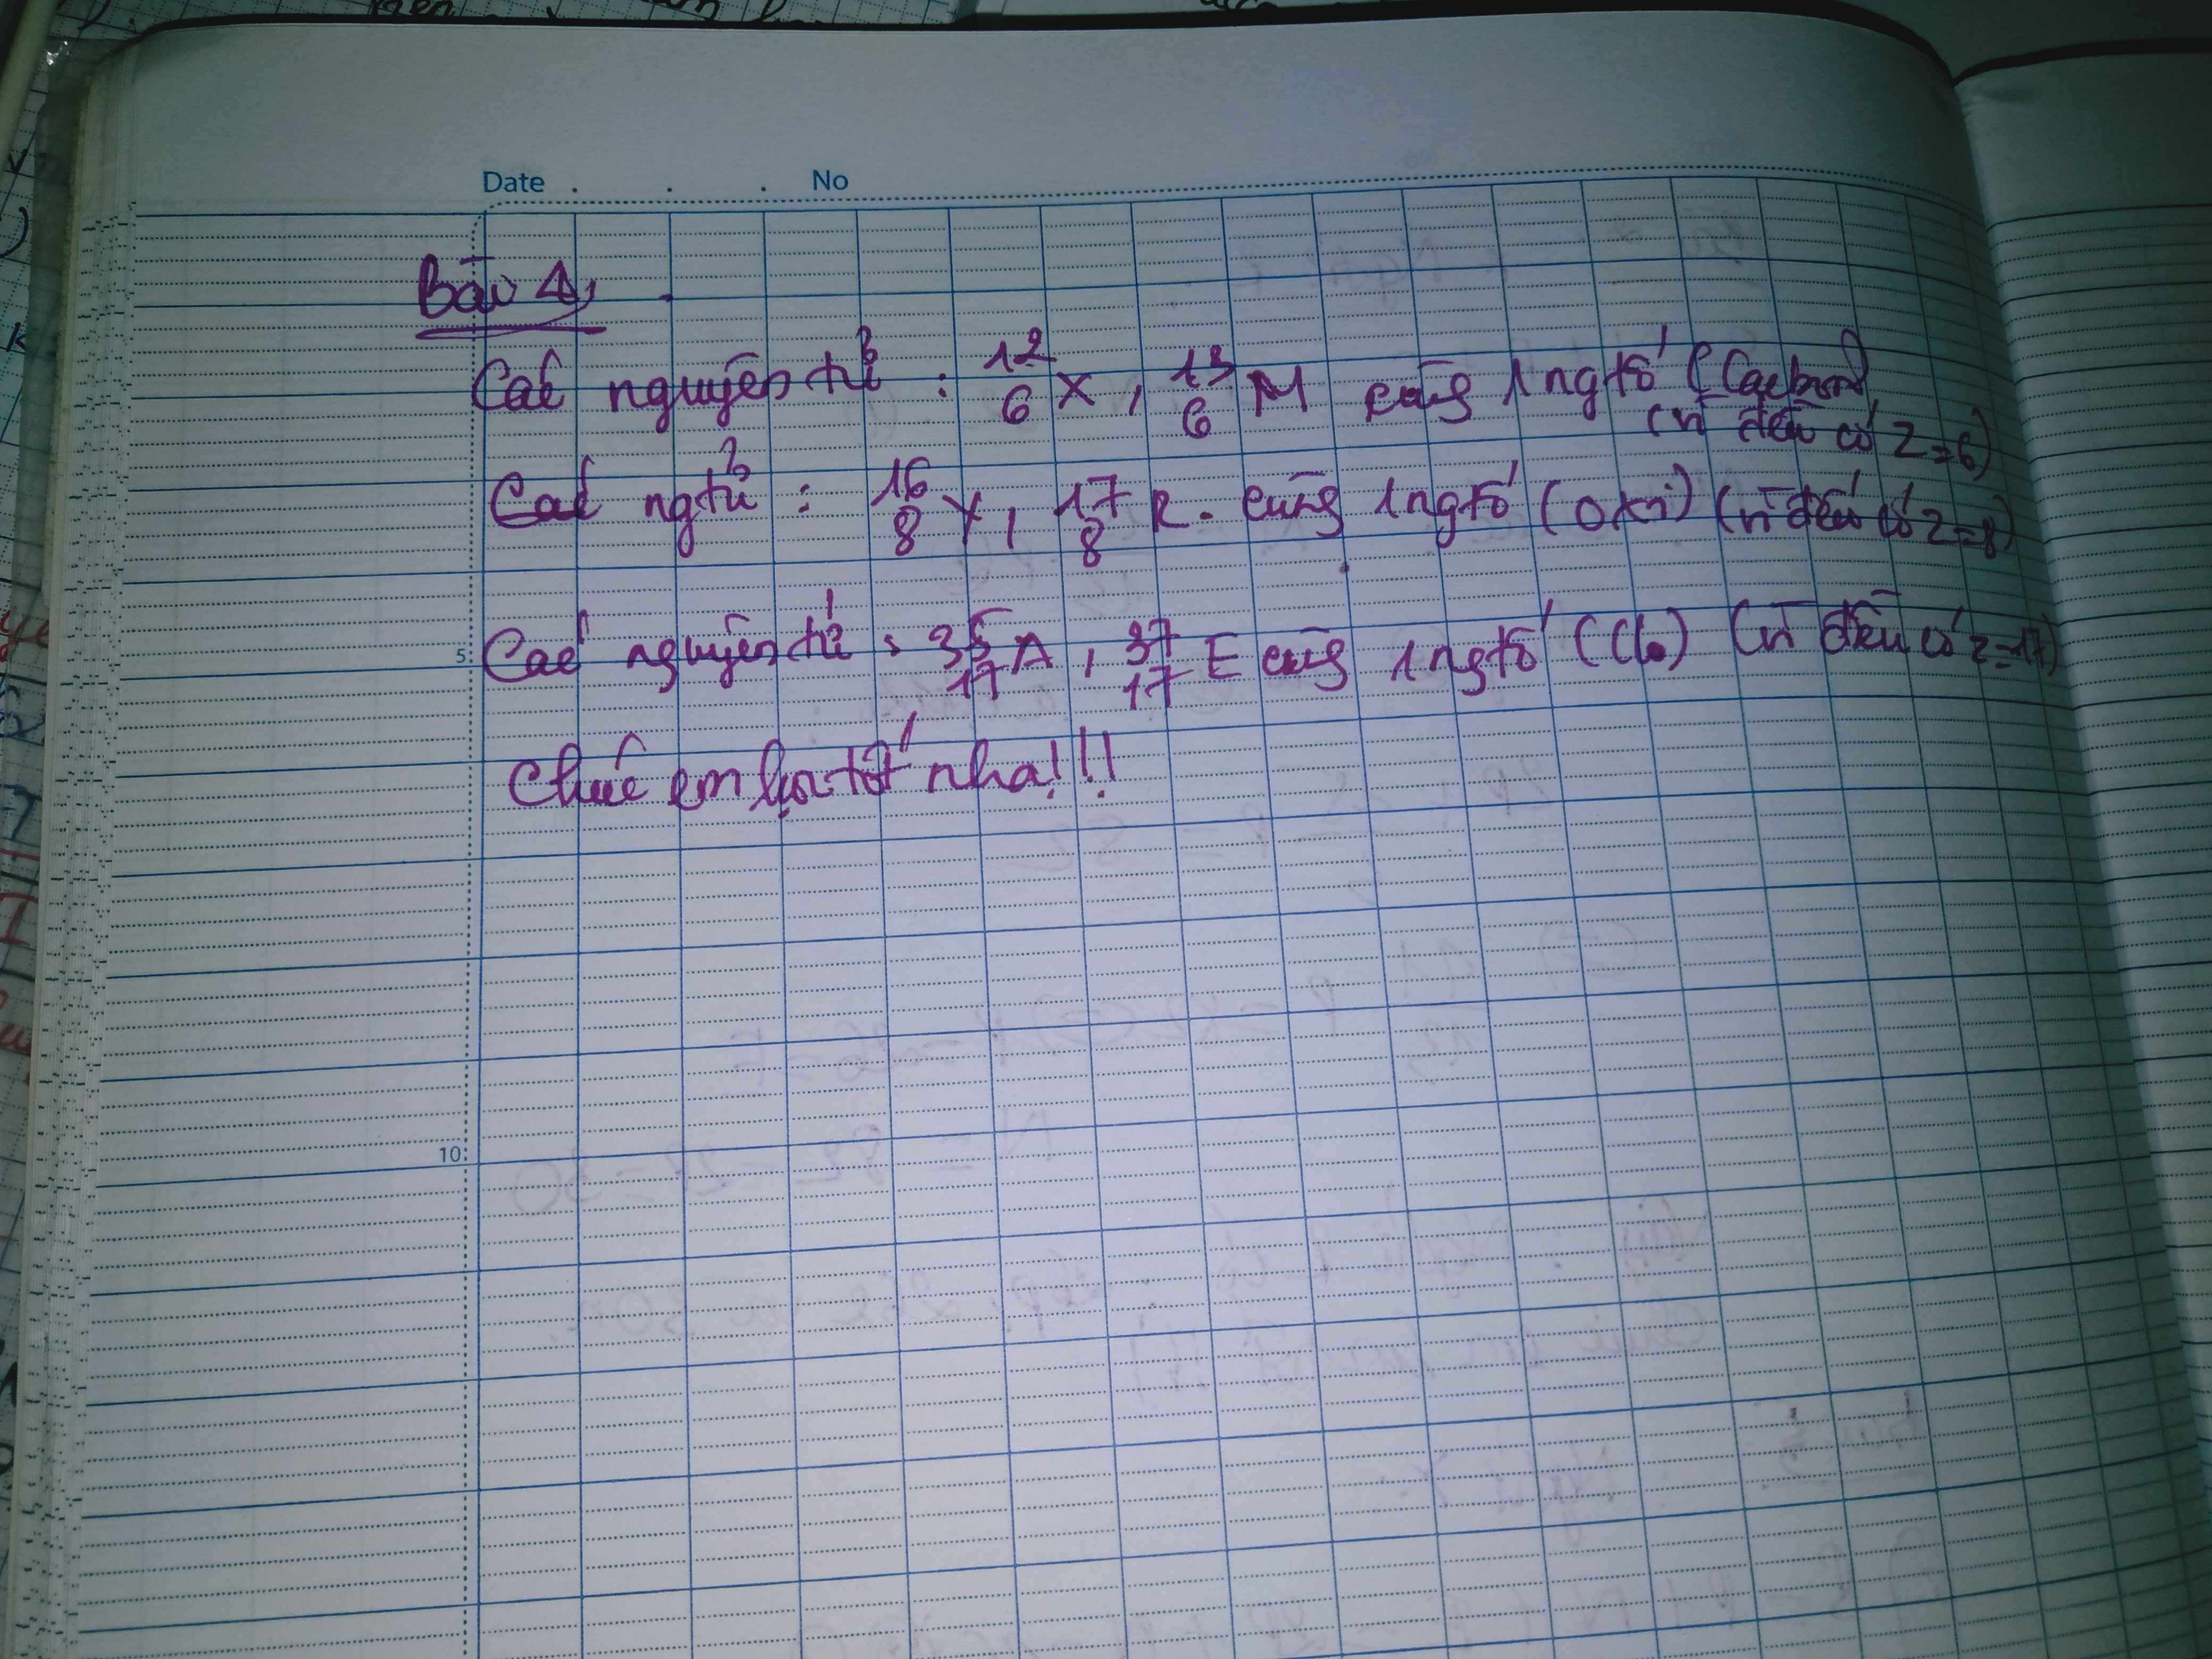 Date . . . No
Bài 4,
Các nguyên tử : ¹²₆X, ¹³₆M cùng 1 ngtố (Cacbon)
(vì đều có Z=6)
Các ngtử : ¹⁶₈Y, ¹⁷₈R. cùng 1 ngtố (oxi) (vì đều có Z=8)
5
Các nguyên tử : ³⁵₁₇A, ³⁷₁₇E cùng 1 ngtố (Clo) (vì đều có Z=17)
Chúc em học tốt nha!!!
10